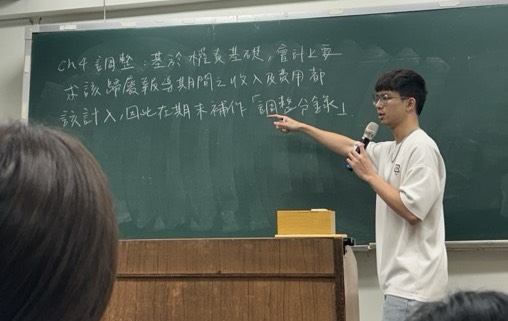 ch4 調整：基於權責基礎，會計上要
求該歸屬報當期間之收入及費用都
該計入，因此在期末補作「調整分錄」